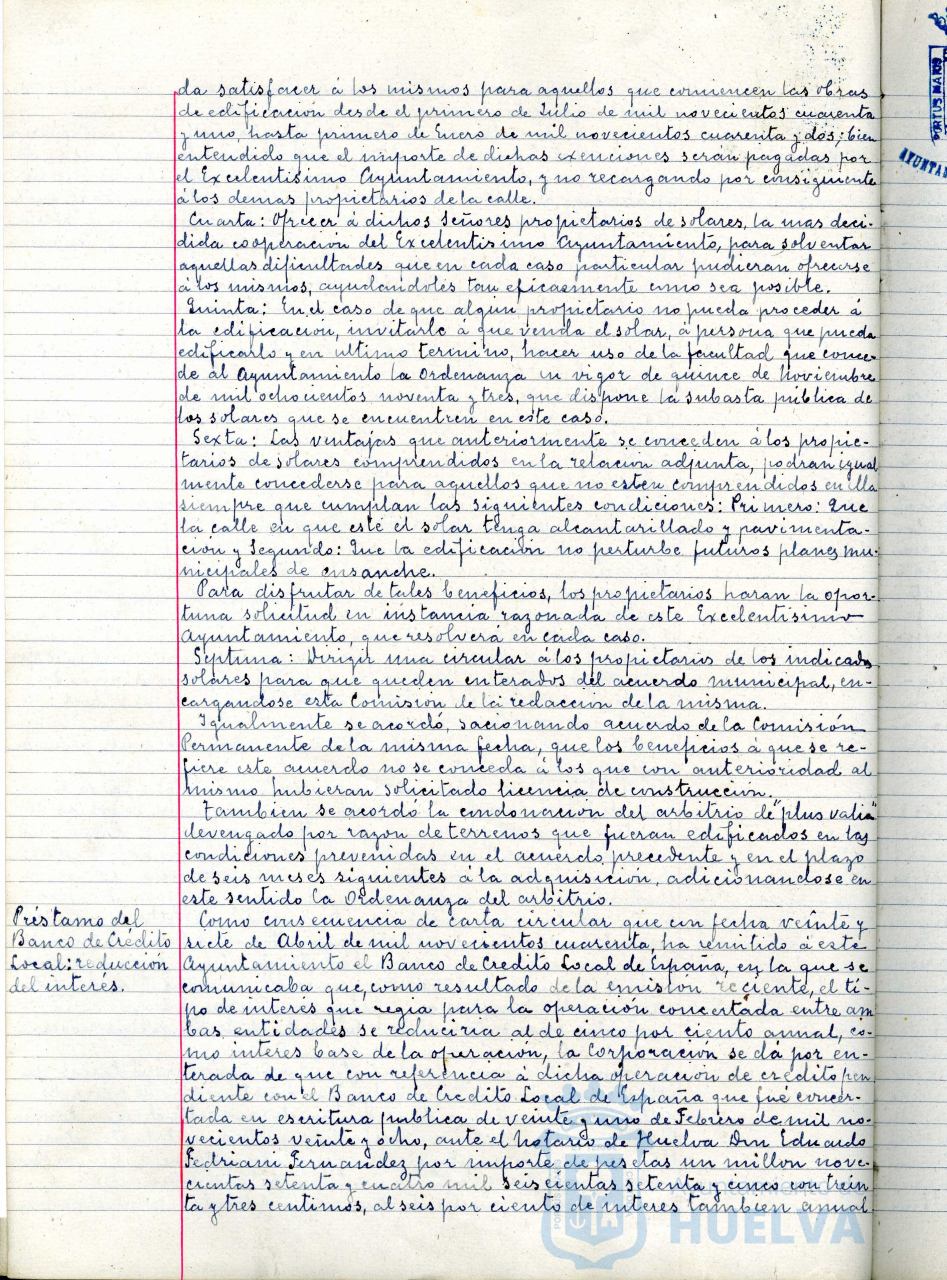 da satisfacer á los mismos para aquellos que comiencen las obras
de edificación desde el primero de Julio de mil novecientos cuarenta
y uno, hasta primero de Enero de mil novecientos cuarenta y dos; bien
entendido que el importe de dichas exenciones serán pagadas por
el Excelentisimo Ayuntamiento, y no recargando por consiguiente
á los demas propietarios de la calle.
Cuarta: Ofrecer á dichos Señores propietarios de solares, la mas deci-
dida cooperación del Excelentisimo Ayuntamiento, para solventar
aquellas dificultades que en cada caso particular pudieran ofrecerse
á los mismos, ayudandoles tan eficazmente como sea posible.
Quinta: En el caso de que algun propietario no pueda proceder á
la edificación, invitarle á que venda el solar, á persona que pueda
edificarlo y en ultimo termino, hacer uso de la facultad que conce-
de al Ayuntamiento la Ordenanza en vigor de quince de Noviembre
de mil ochocientos noventa y tres, que dispone la subasta pública de
los solares que se encuentren en este caso.
Sexta: Las ventajas que anteriormente se conceden á los propie-
tarios de solares comprendidos en la relación adjunta, podran igual
mente concederse para aquellos que no esten comprendidos en ella
siempre que cumplan las siguientes condiciones: Primero: Que
la calle en que esté el solar tenga alcantarillado y pavimenta-
ción y Segundo: Que la edificación no perturbe futuros planes mu-
nicipales de ensanche.
Para disfrutar de tales beneficios, los propietarios haran la opor-
tuna solicitud en instancia razonada de este Excelentisimo
Ayuntamiento, que resolverá en cada caso.
Septima: Dirigir una circular á los propietarios de los indicados
solares para que queden enterados del acuerdo municipal, en-
cargandose esta Comisión de la redacción de la misma.
Igualmente se acordó, sacionando acuerdo de la Comisión
Permanente de la misma fecha, que los beneficios á que se re-
fiere este acuerdo no se conceda á los que con anterioridad al
mismo hubieran solicitado licencia de construcción.
Tambien se acordó la condonación del arbitrio de "plus valia"
devengado por razon de terrenos que fueran edificados en las
condiciones prevenidas en el acuerdo precedente y en el plazo
de seis meses siguientes á la adquisición, adicionandose en
este sentido la Ordenanza del arbitrio.
Préstamo del
Banco de Crédito
Local: reducción
del interés.
Como consecuencia de carta circular que con fecha veinte y
siete de Abril de mil novecientos cuarenta, ha remitido á este
Ayuntamiento el Banco de Credito Local de España, en la que se
comunicaba que, como resultado de la emisión reciente, el ti-
po de interés que regia para la operación concertada entre am
bas entidades se reduciria al de cinco por ciento anual, co-
mo interes base de la operación, la Corporación se dá por en-
terada de que con referencia á dicha operación de credito pen
diente con el Banco de Credito Local de España que fué concer-
tada en escritura publica de veinte y uno de Febrero de mil no-
vecientos veinte y ocho, ante el Notario de Huelva Don Eduardo
Fedriani Fernandez por importe de pesetas un millon nove-
cientas setenta y cuatro mil seiscientas setenta y cinco con trein
ta y tres centimos, al seis por ciento de interes tambien anual
HUELVA
PORTUS MARIS
AYUNTA